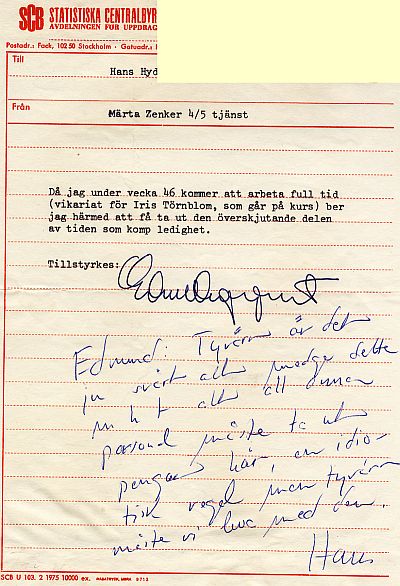 SCB STATISTISKA CENTRALBYR
AVDELNINGEN FÖR UPPDRAG
Postadr.: Fack, 102 50 Stockholm • Gatuadr.:
Till
Hans Hyd
Från
Märta Zenker 4/5 tjänst
Då jag under vecka 46 kommer att arbeta full tid
(vikariat för Iris Törnblom, som går på kurs) ber
jag härmed att få ta ut den överskjutande delen
av tiden som komp ledighet.
Tillstyrkes:
Edmund: Tyvärr är det
ju svårt att medge detta
m h t att all annan
personal måste ta ut
pengar här, en idio-
tisk regel men tyvärr
måste vi leva med den.
Hans
SCB U 103. 2 1975 10000 ex.